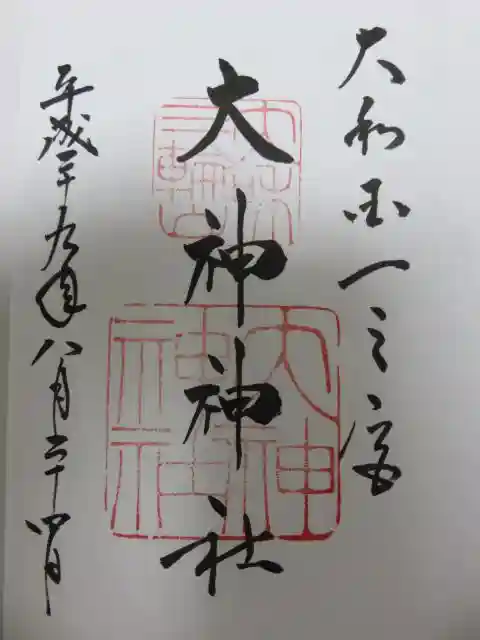 大和国一之宮
大神神社
平成二十九年八月二十四日
三輪
大神神社